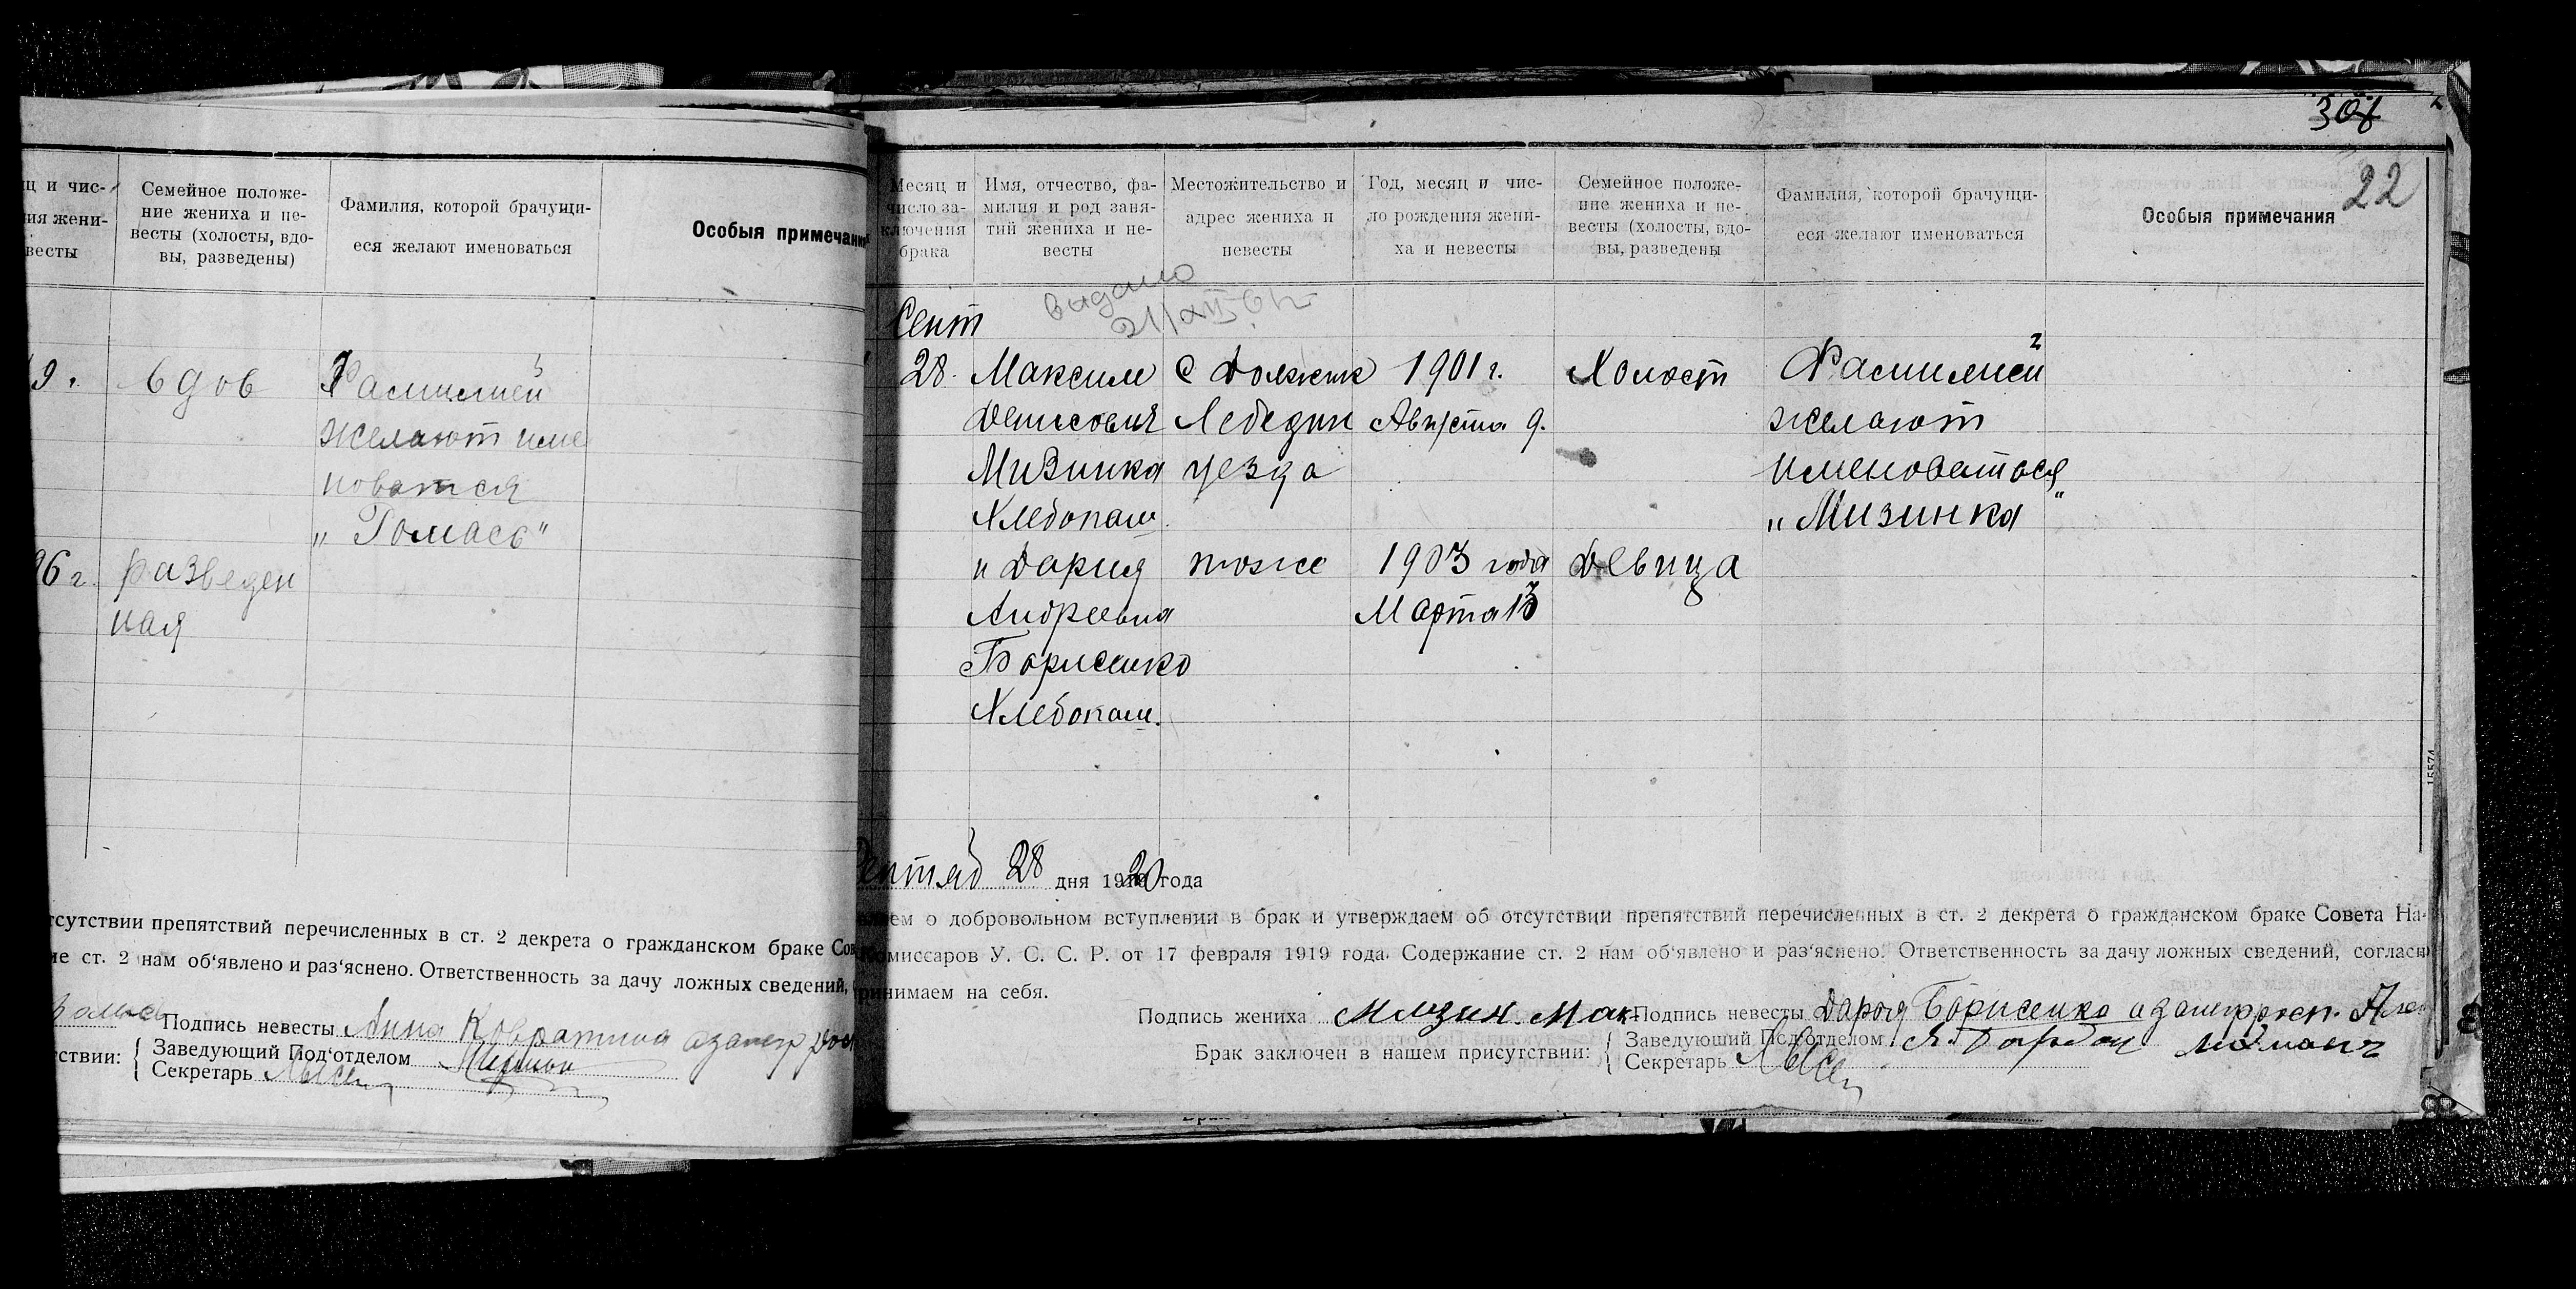 яц и чис-
ия жени-
весты
Семейное положе-
ние жениха и не-
весты (холосты, вдо-
вы, разведены)
Фамилия, которой брачущи-
еся желают именоваться
Особыя примечания
9 г.
вдов
Фамилией
желают име
новатся
„Гомась"
96 г.
разведен
ная
тсутствии препятствий перечисленных в ст. 2 декрета о гражданском браке Сов
ие ст. 2 нам об'явлено и раз'яснено. Ответственность за дачу ложных сведений,
Подпись невесты Анна
тствии:
Заведующий Под'отделом
Секретарь
22
Месяц и
число за-
ключения
брака
Имя, отчество, фа-
милия и род заня-
тий жениха и не-
весты
Местожительство и
адрес жениха и
невесты
Год, месяц и чис-
ло рождения жени-
ха и невесты
Семейное положе-
ние жениха и не-
весты (холосты, вдо-
вы, разведены
Фамилия, которой брачущи-
еся желают именоваться
Особыя примечания
выдано
Сент
28.
Максим
Денисович
Мизинка
Хлебопаш.
С Должик
Лебедин
уезда
1901 г.
Августа 9.
Холост
Фамилией
желают
именоваться
„Мизинка"
и Дария
Андреевна
Борисенко
Хлебопаш.
тоже
1903 года
Марта 13
Девица
28 дня 1920 года
ляем о добровольном вступлении в брак и утверждаем об отсутствии препятствий перечисленных в ст. 2 декрета о гражданском браке Совета На-
омиссаров У. С. С. Р. от 17 февраля 1919 года. Содержание ст. 2 нам об'явлено и раз'яснено. Ответственность за дачу ложных сведений, согласн
ринимаем на себя.
Подпись жениха Мизин. Мак
Подпись невесты Дарья Борисенко
Брак заключен в нашем присутствии:
Заведующий Под'отделом
Секретарь
15574